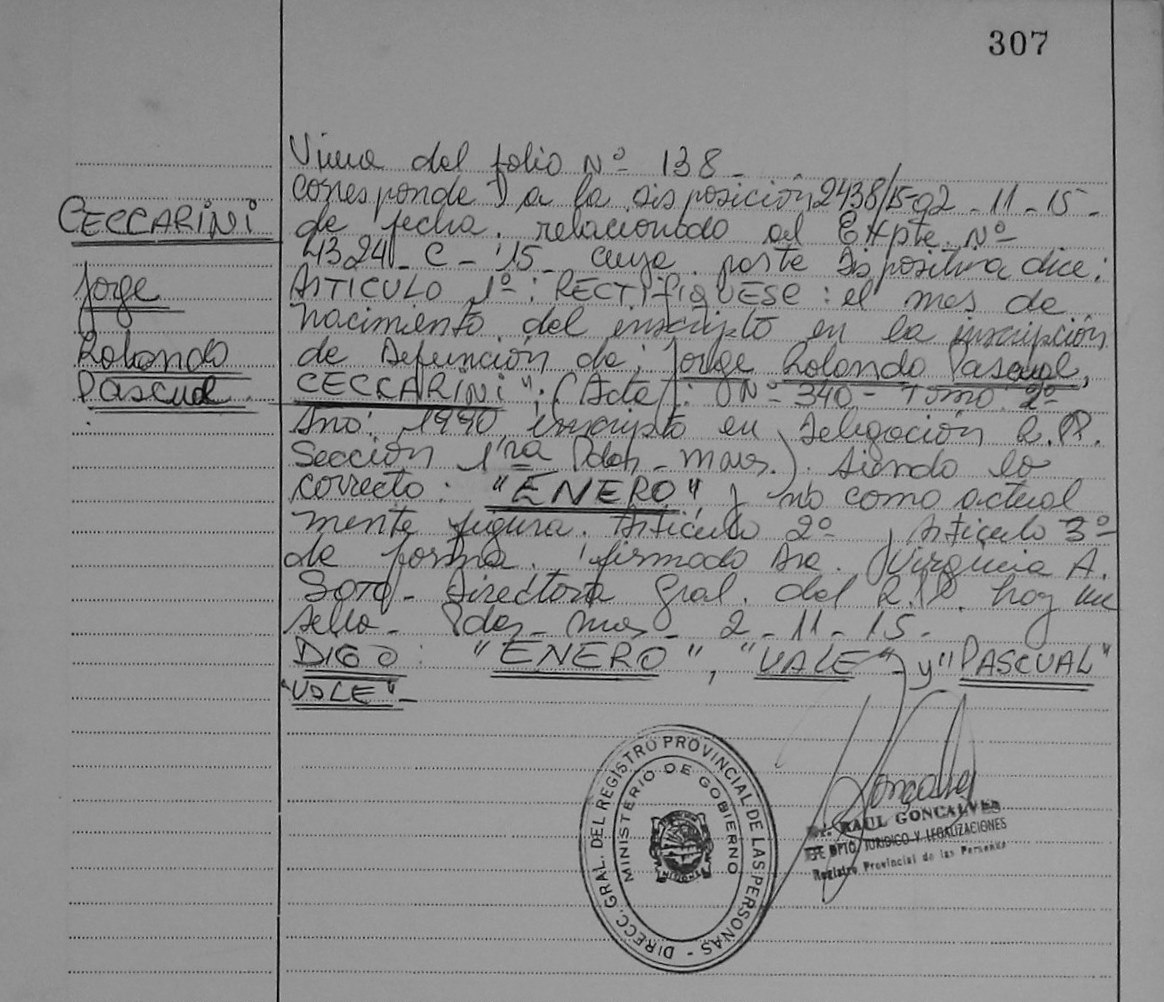 307
Viene del folio Nº 138 -
CECCARINI
Jorge
Rolando
Pascual
corresponde a la disposición 2438/15-02-11-15-
de fecha. relacionado al Expte. Nº
4324 - C - 15 - cuya parte dispositiva dice:
ARTICULO 1º: RECTIFIQUESE: el mes de
nacimiento del inscripto en la inscripción
de defunción de: Jorge Rolando Pascual,
CECCARINI", (Acta): Nº 340 - Tomo 2º
Año: 1990 inscripto en delegación R.P.
Sección 1ra Pdas - mnes.). siendo lo
correcto: "ENERO", y no como actual
mente figura. Artículo 2º, Artículo 3º
de forma. firmado Dra. Virginia A.
Soto - Directora Gral. del R.P. hay un
sello - Pdas - Mnes - 2 - 11 - 15 -
DIGO: "ENERO", "VALE" - y "PASCUAL"
"VALE" -
DIRECC. GRAL. DEL REGISTRO PROVINCIAL DE LAS PERSONAS -
MINISTERIO DE GOBIERNO
MISIONES
RAUL GONCALVES
JEFE DPTO. JURIDICO Y LEGALIZACIONES
Registro Provincial de las Personas